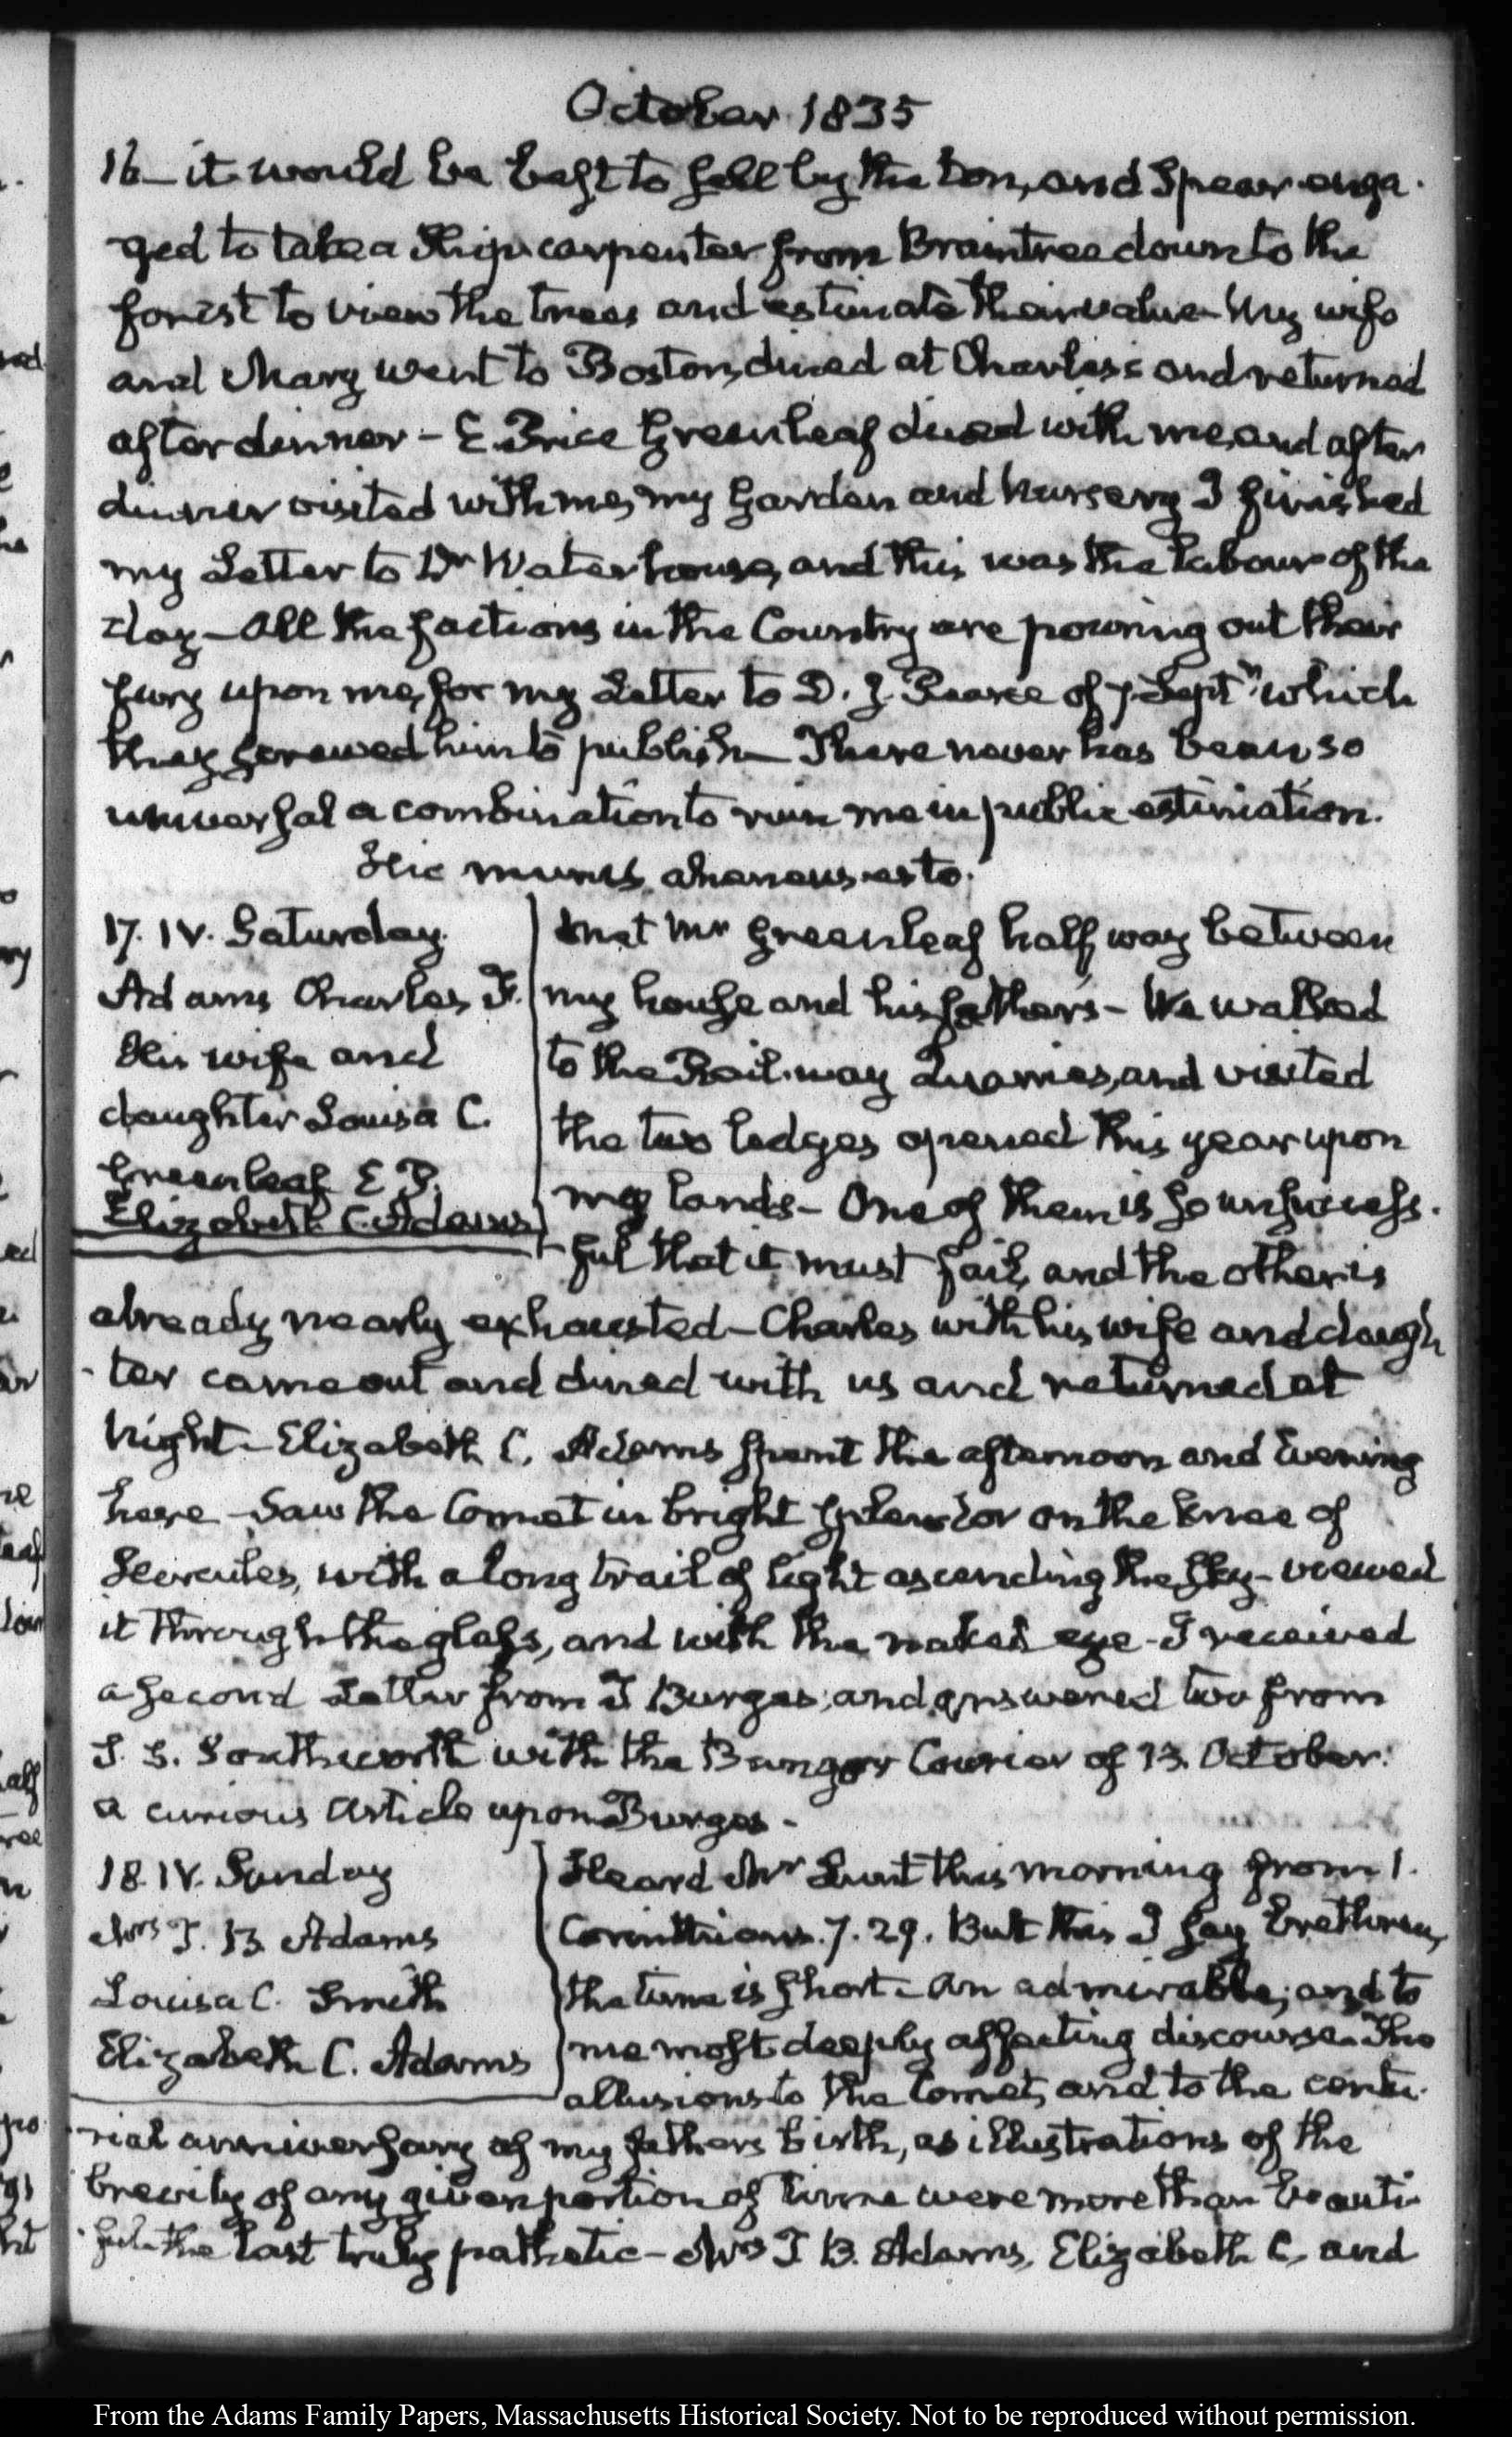 October 1835
16— it would be best to sell by the ton, and Spear enga-
-ged to take a Ship-carpenter from Braintree down to the
forest to view the trees and estimate their value— My wife
and Mary went to Boston, dined at Charles's and returned
after dinner— E Price Greenleaf dined with me, and after
dinner visited with me, my Garden and Nursery I finished
my Letter to Dr Waterhouse, and this was the labour of the
day— All the factions in the Country are pouring out their
fury upon me, for my Letter to D. J. Pearce of 7. Septr which
they screwed him to publish— There never has been so
universal a combination to ruin me in public estimation.
Hic murus aheneus esto.
17. IV. Saturday.
Adams Charles F.
His wife and
daughter Louisa C.
Greenleaf E P.
Elizabeth C. Adams
met Mr Greenleaf half way between
my house and his father's— We walked
to the Rail-way Quarries, and visited
the two ledges opened this year upon
my lands— One of them is so unsuccess-
-ful that it must fail, and the other is
already nearly exhausted— Charles with his wife and daugh
-ter came out and dined with us and returned at
Night— Elizabeth C. Adams spent the afternoon and Evening
here— Saw the Comet in bright splendor on the knee of
Hercules, with a long trail of light ascending the sky— viewed
it through the glass, and with the naked eye— I received
a second Letter from T Burges; and answered two from
S. S. Southworth with the Bangor Courier of 13. October:
a curious Article upon Burges—
18. IV. Sunday
Mrs T. B. Adams
Louisa C. Smith
Elizabeth C. Adams
Heard Mr Lunt this morning from 1.
Corinthians. 7. 29. But this I say brethren,
the time is short— An admirable; and to
me most deeply affecting discourse. The
allusions to the Comet, and to the cente-
-rial anniversary of my fathers birth, as illustrations of the
brevity of any given portion of Time were more than beauti-
-ful— the last truly pathetic— Mrs T B. Adams, Elizabeth C. and
From the Adams Family Papers, Massachusetts Historical Society. Not to be reproduced without permission.